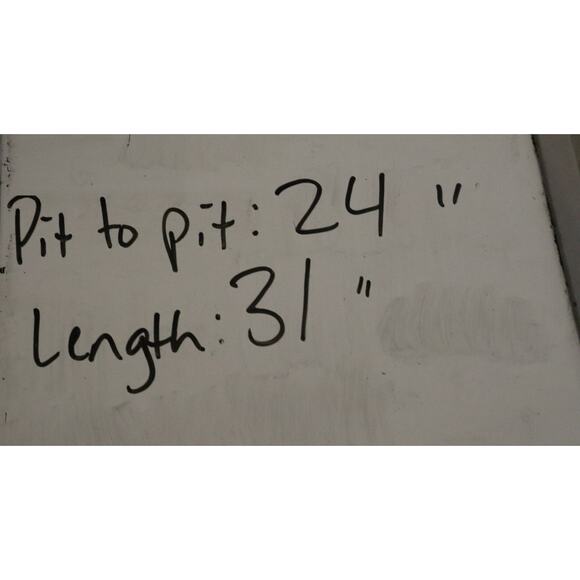 Pit to pit: 24 "
Length: 31 "